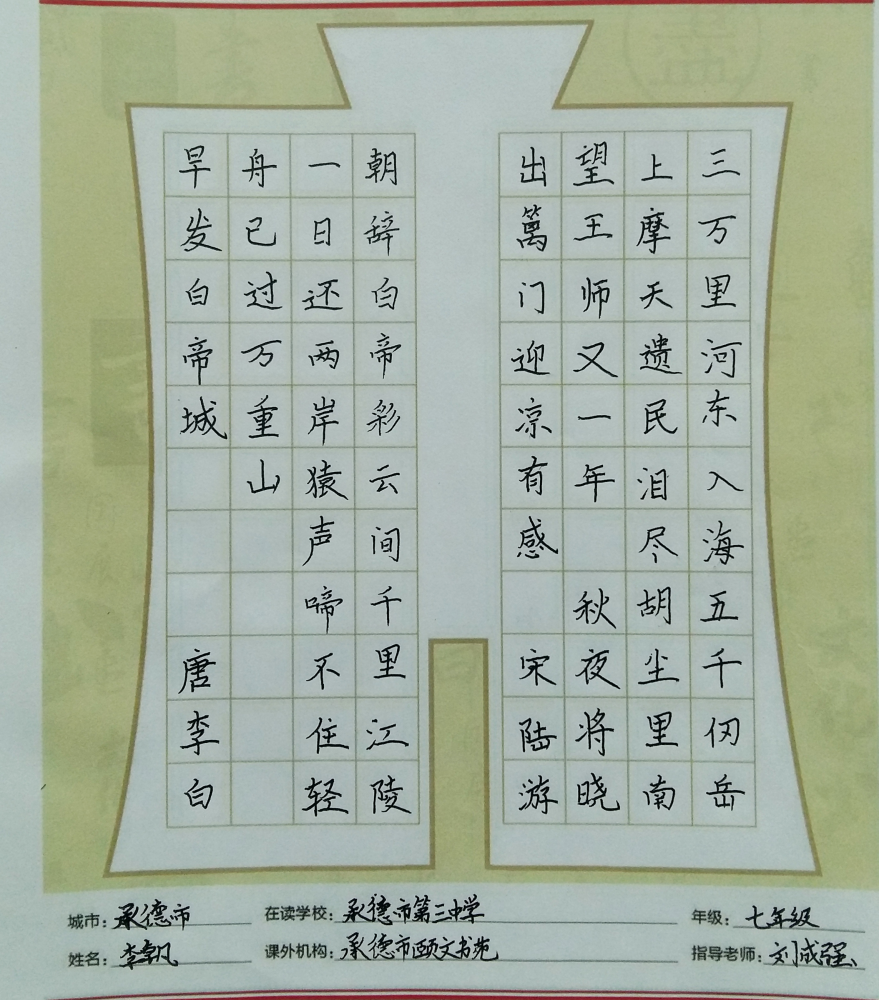 三万里河东入海五千仞岳
上摩天遗民泪尽胡尘里南
望王师又一年 秋夜将晓
出篱门迎凉有感 宋陆游
朝辞白帝彩云间千里江陵
一日还两岸猿声啼不住轻
舟已过万重山
早发白帝城 唐李白
城市：承德市 在读学校：承德市第三中学 年级：七年级
姓名：李 课外机构：承德市颐文书苑 指导老师：刘成强